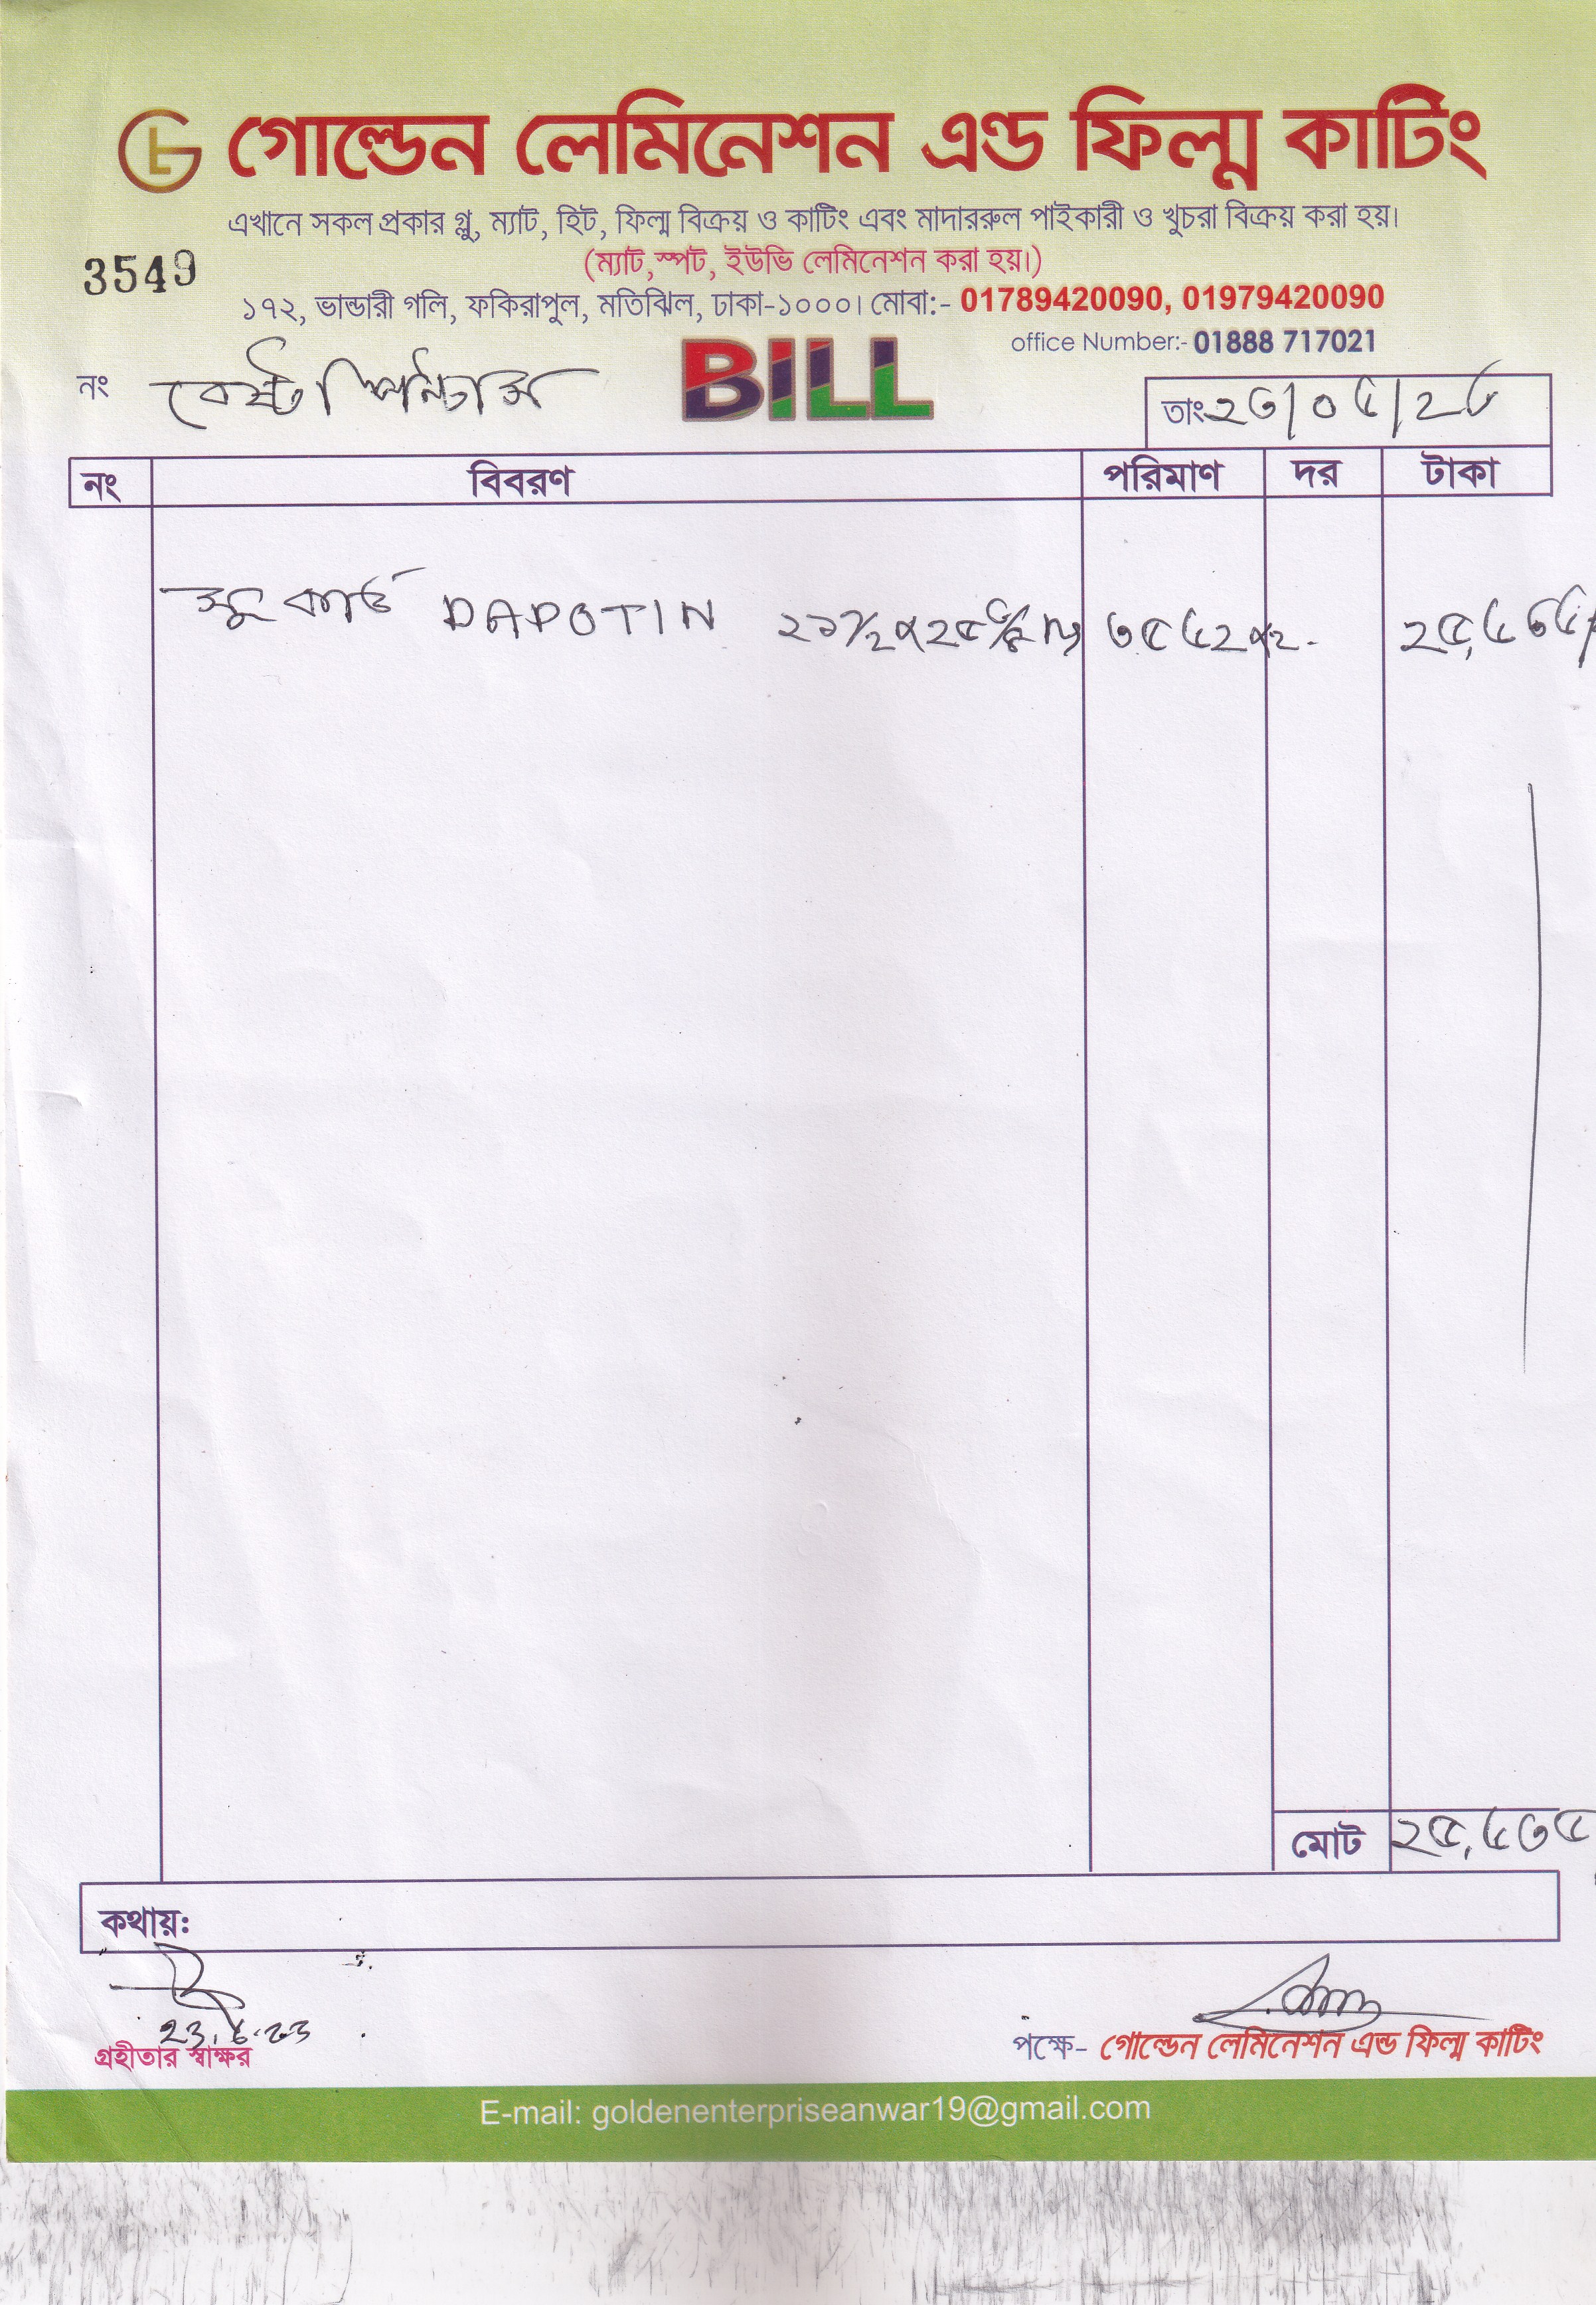 গোল্ডেন লেমিনেশন এণ্ড ফিল্ম কাটিং
এখানে সকল প্রকার গ্লু, ম্যাট, হিট, ফিল্ম বিক্রয় ও কাটিং এবং মাদাররুল পাইকারী ও খুচরা বিক্রয় করা হয়।
(ম্যাট,স্পট, ইউভি লেমিনেশন করা হয়।)
3549
১৭২, ভান্ডারী গলি, ফকিরাপুল, মতিঝিল, ঢাকা-১০০০। মোবা:- 01789420090, 01979420090
office Number:- 01888 717021
নং বেষ্ট BILL
তাং
নং বিবরণ পরিমাণ দর টাকা
কার্ড DAPOTIN
মোট ২৫,৬৩৫
কথায়:
23.6.23
গ্রহীতার স্বাক্ষর
পক্ষে- গোল্ডেন লেমিনেশন এন্ড ফিল্ম কাটিং
E-mail: goldenenterpriseanwar19@gmail.com